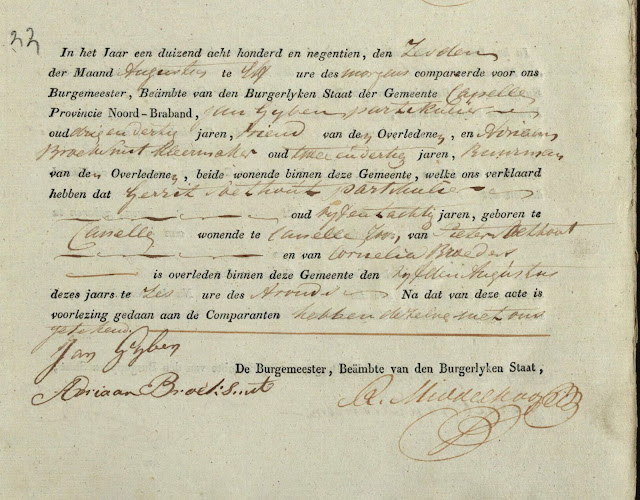 33
In het Iaar een duizend acht honderd en negentien, den Zesden
der Maand Augustus te Elf ure des morgens compareerde voor ons
Burgemeester, Beämbte van den Burgerlyken Staat der Gemeente Capelle
Provincie Noord-Braband, Jan Gyben partikulier
oud drie en dertig jaren, vriend van den Overledenen, en Adriaan
Broekhuit kleermaker oud twee en dertig jaren, Buurman
van den Overledenen, beide wonende binnen deze Gemeente, welke ons verklaard
hebben dat Gerrit oethout partikulier
oud vyf en tachtig jaren, geboren te
Capelle wonende te Capelle van Pieter oethout
en van Cornelia Broeder
is overleden binnen deze Gemeente den vyfden Augustus
dezes jaars te Zes ure des Avonds Na dat van deze acte is
voorlezing gedaan aan de Comparanten hebben dezelve met ons
getekend
Jan Gyben
De Burgemeester, Beämbte van den Burgerlyken Staat,
Adriaan A. Middelkoop